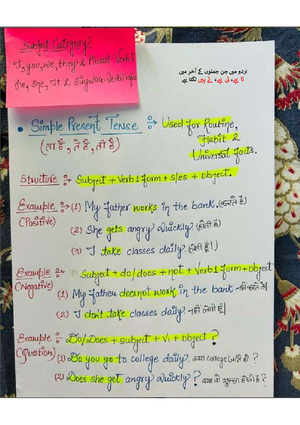 Subject Category?
I, you, we, they & Plural - Verb1
He, She, It & Singular - Verb1+s/es
اردو میں جن جملوں کے آخر میں
تا ہے، تی ہے، تے ہیں آتا ہے
• Simple Present Tense :→ Used for Routine,
(ता है, ते है, ती है) Habit &
Universal facts.
Structure :→ Subject + Verb 1 form + s/es + object.
Example :→ (1) My father works in the bank. (करते है)
(Positive) (2) She gets angry quickly? (होती है)
(3) I take classes daily. (लेती हूँ।)
Example :→ Subject + do/does + not + Verb 1 form + object
(Negative) (1) My father doesnot work in the bank नहीं करते है|
(2) I don't take classes daily. नहीं लेती हूँ|
Example :→ Do/Does + subject + V1 + object ?
(Question) (1) Do you go to college daily. क्या college जाते हो ?
(2) Does she get angry quickly? क्या वो गुस्सा होती है ?